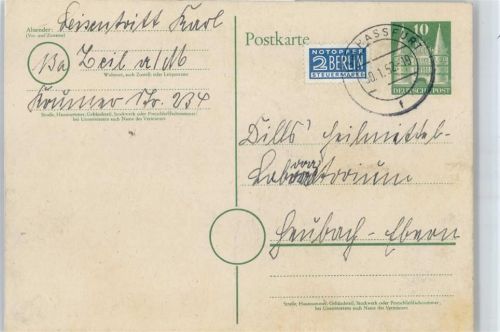 Absender:
(Vor- und Zuname)
Leisentritt Karl
13a
Zeil a/M
Wohnort, auch Zustell- oder Leitpostamt
Krumer Str. 234
Straße, Hausnummer, Gebäudeteil, Stockwerk oder Postschließfachnummer;
bei Untermietern auch Name des Vermieters
Postkarte
NOTOPFER
2 BERLIN
STEUERMARKE
HASSFURT
10
DEUTSCHE POST
Dills' Heilmittel-
Laboratorium
Heubach-Ebern
Straße, Hausnummer, Gebäudeteil, Stockwerk oder Postschließfachnummer;
bei Untermietern auch Name des Vermieters